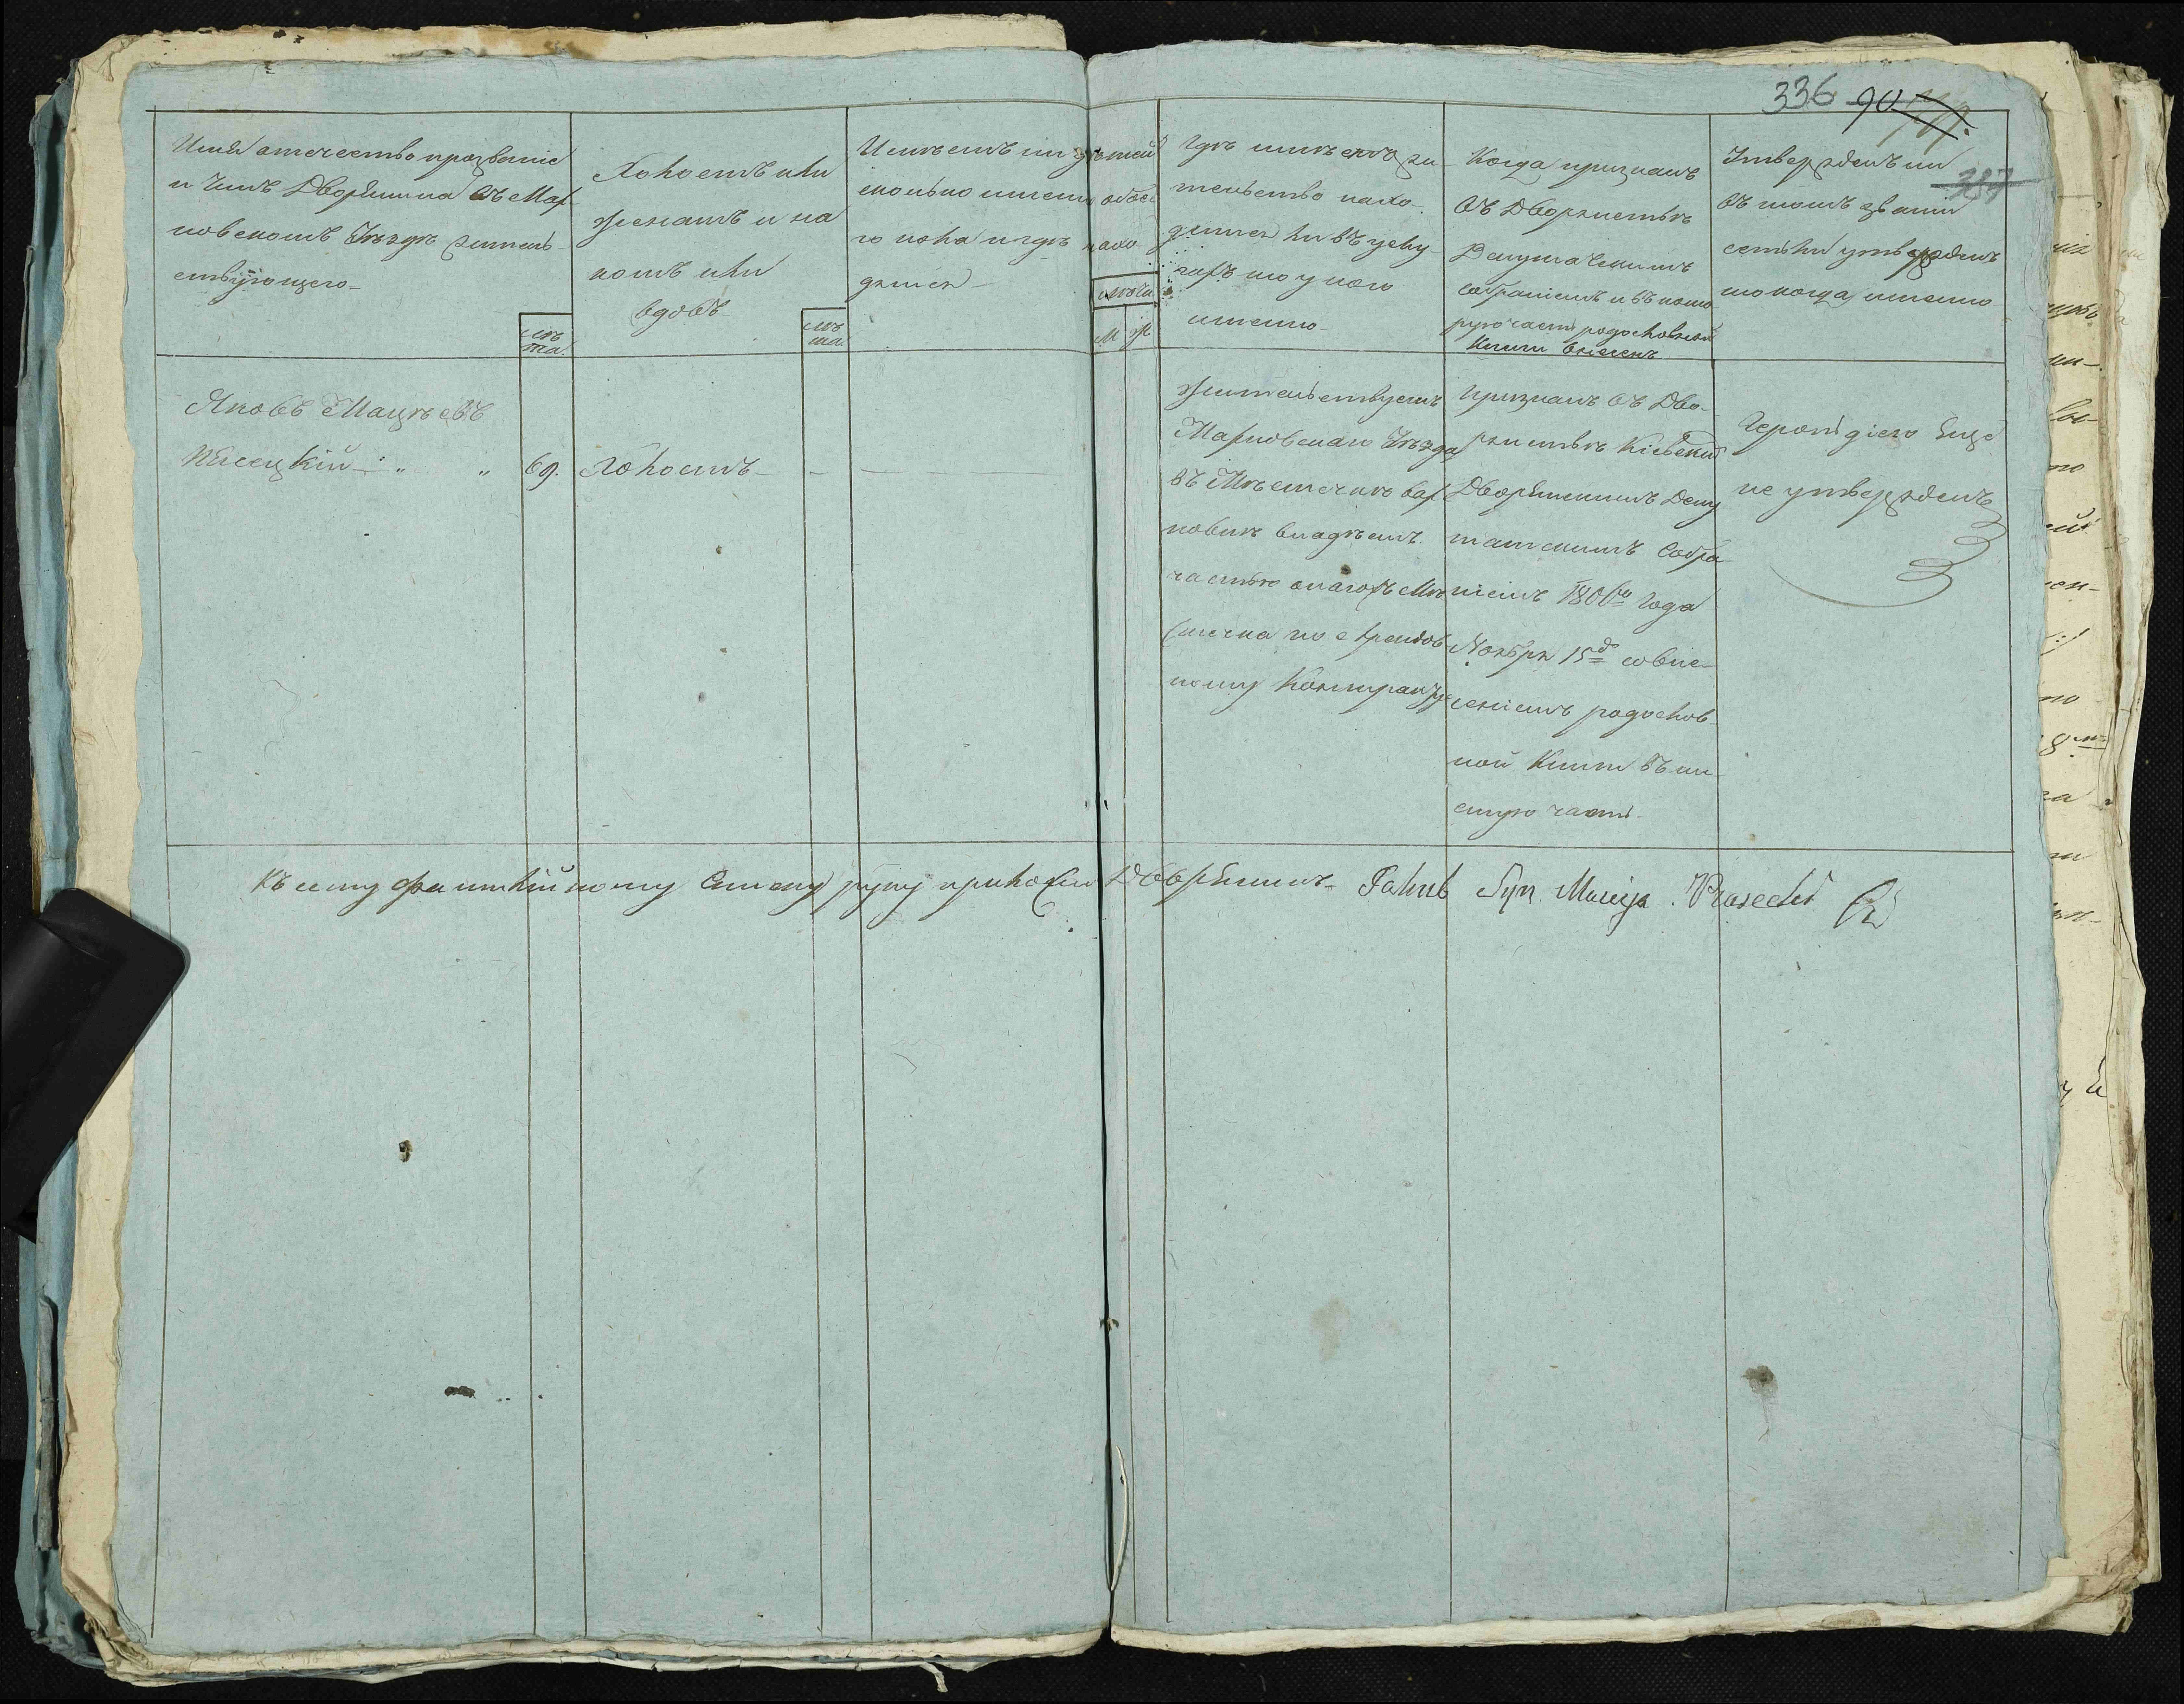 336 90
387
Имя отечество прозваніе
и Чинъ Дворянина въ Мах
новскомъ Уѣздѣ жителъ
ствующего
лѣ
та.
Холостъ или
женатъ и на
комъ или
вдовъ
лѣ
та.
Имѣетъ ли дѣтей
сколько имено обоего
го пола и где нахо
дятся
лѣта
М Ж
Гдѣ имѣетъ жи
тельство нахо
дится ли въ услу
гахъ то у кого
именно
Когда признанъ
въ Дворянствѣ
Депутатскимъ
собраніемъ и въ кото
рую часть родословной
Книги внесенъ
Утвержденъ ли
въ томъ званіи
естьли утвержденъ
то когда именно
Яковъ Мацѣевъ
Пясецкій " " 69. Холостъ
Жительствуетъ
Махновскаго Уѣзда
въ Мѣстечкѣ
владѣетъ
частью онаго Мѣ
стечка по
ному Контракту
Признанъ въ Дво
рянствѣ Кіевскимъ
Дворянскимъ Депу
татскимъ Собра
ніемъ 1806го Года
Ноября 15д совне
сеніемъ родослов
ной Книги въ ше
стую часть
Герольдіею Еще
не утвержденъ
Къ сему фамилійному Списку руку приложил Дворянинъ Jakub Syn Macieja Piasecki